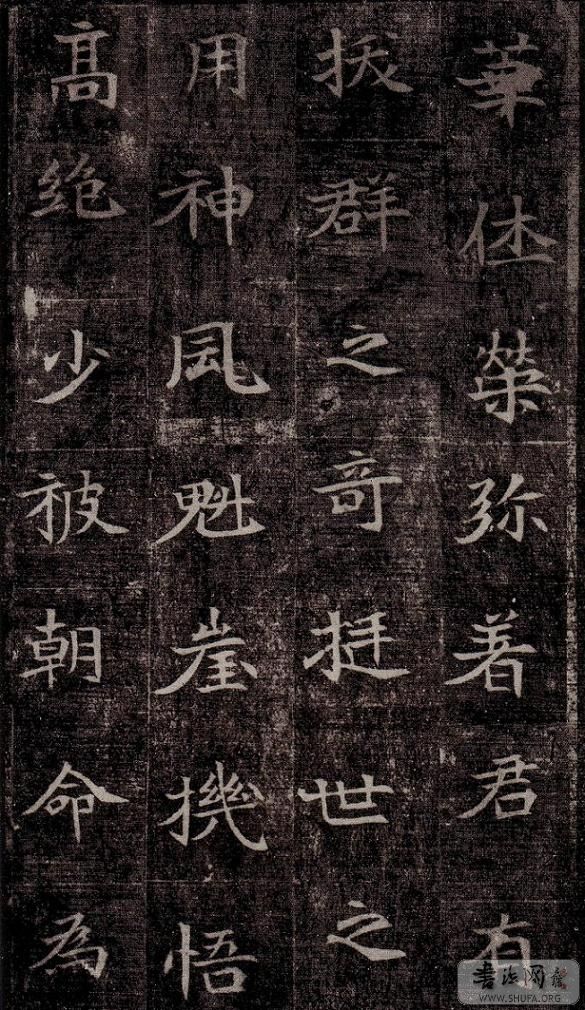 華㑅榮弥著君有
拔群之奇挺世之
用神風魁崖機悟
高绝少被朝命為
书法网
WWW.SHUFA.ORG